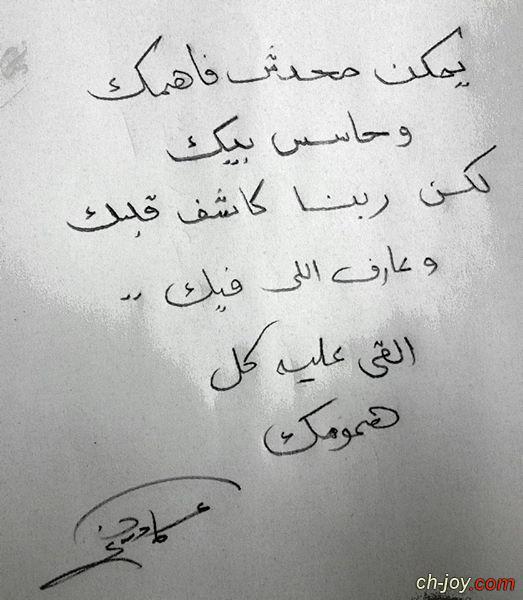 يمكن محدش فاهمك
وحاسس بيك
لكن ربنا كاشف قلبك
وعارف اللى فيك ..
القى عليه كل
همومك
ch-joy.com